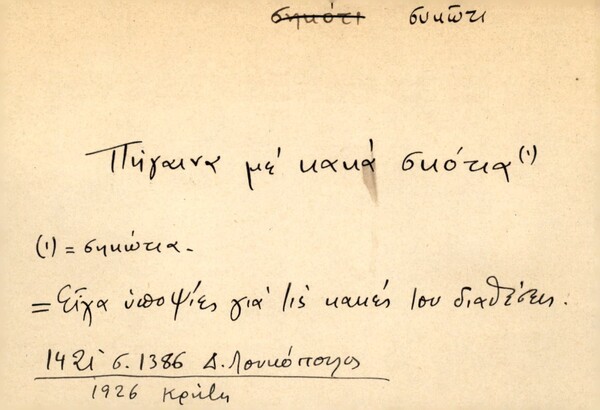 σηκότι συκῶτι
Πήγαινα μέ κακά σκότια (1)
(1) = σηκώτια.
= Εἶχα ὑποψίες γιά τίς κακές του διαθέσεις.
σ. 1386 Δ. Λουκόπουλος
1926 Κρήτη